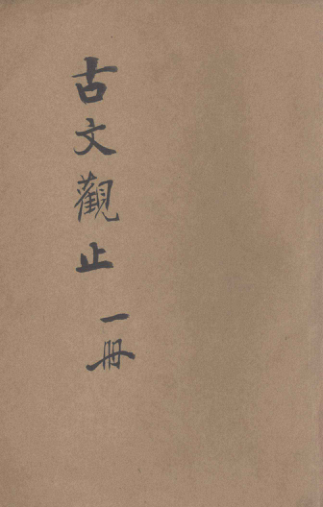 古文觀止
一冊